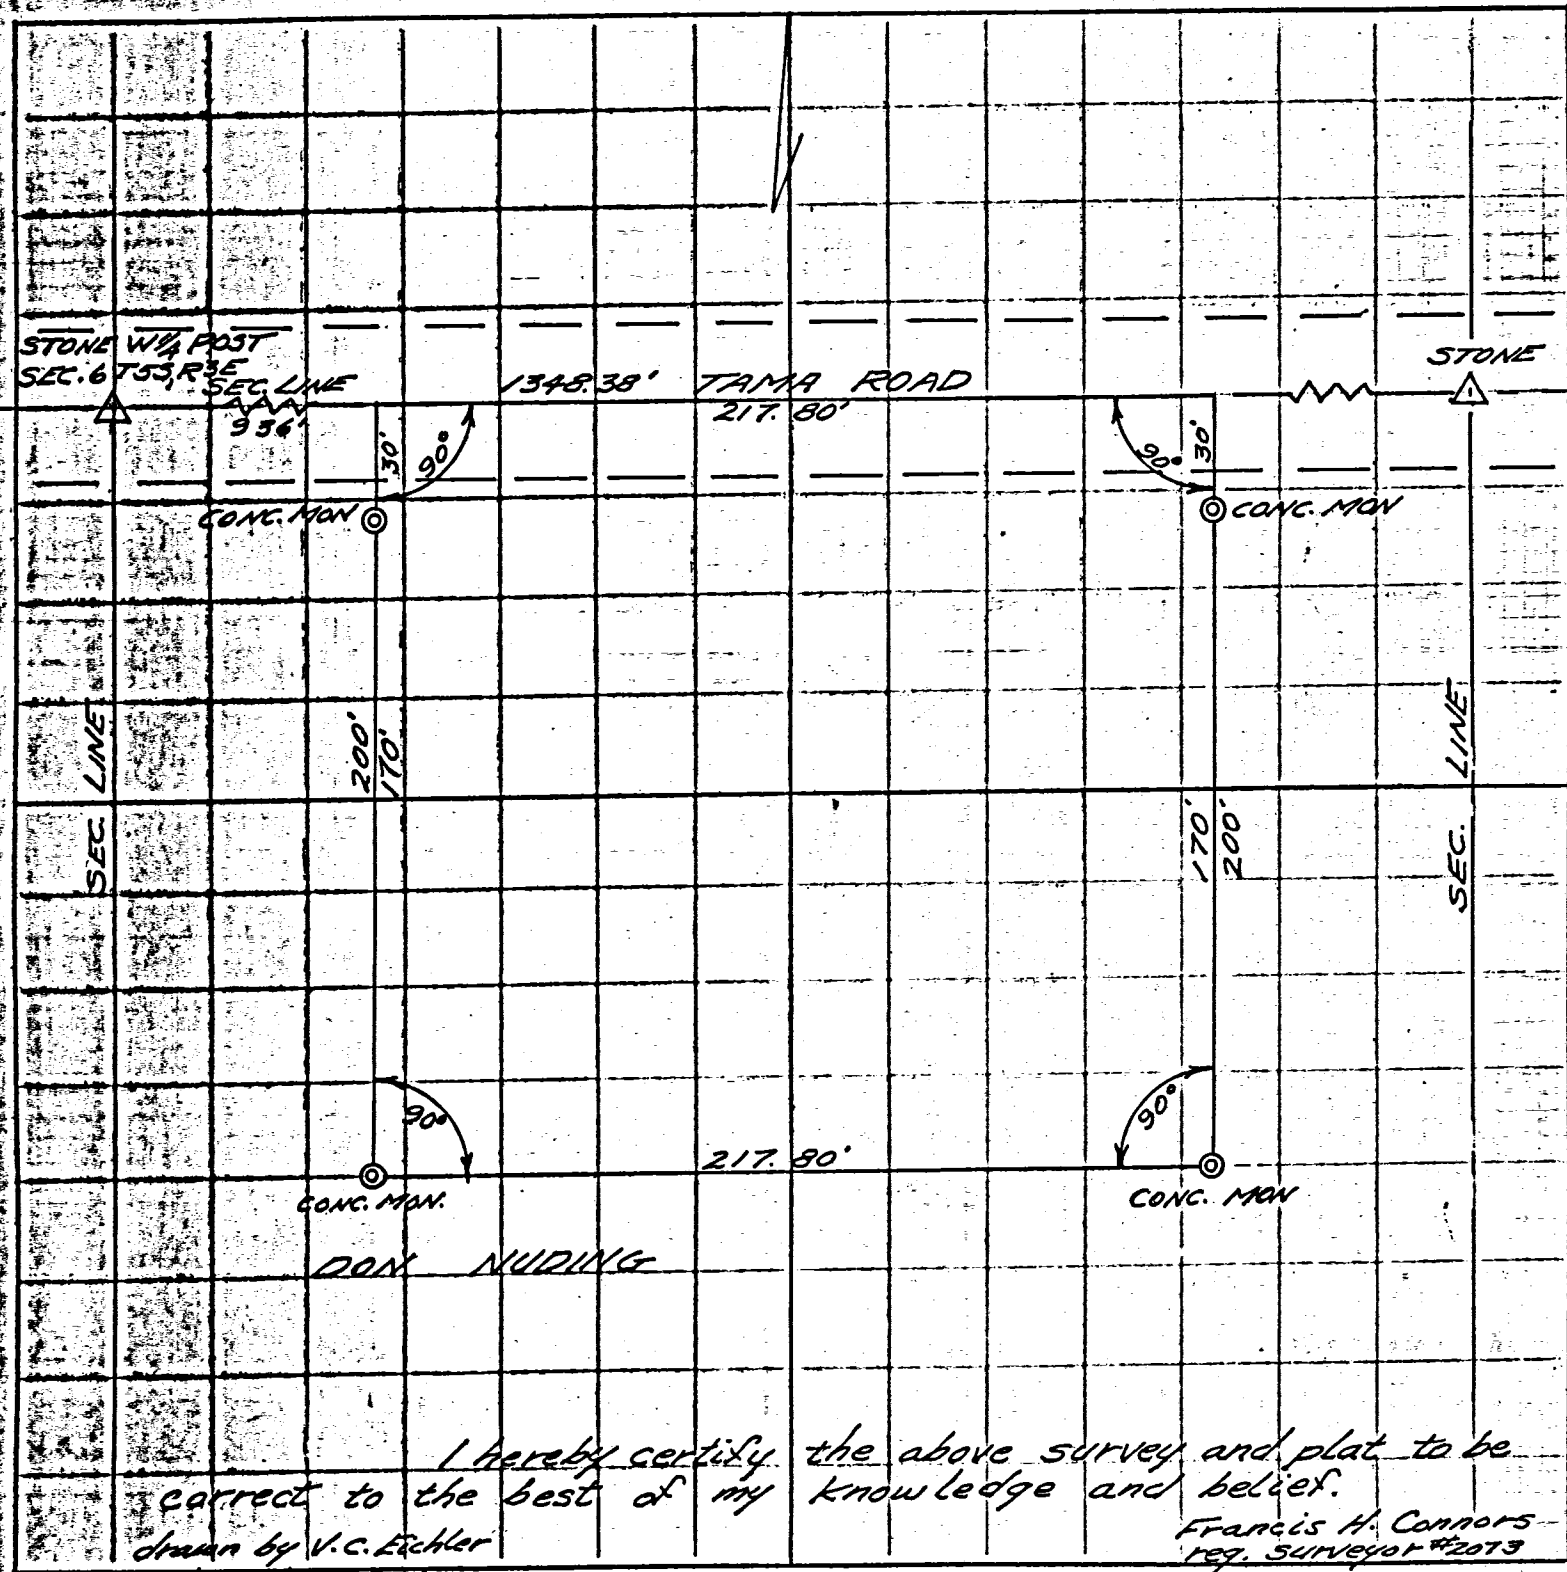 STONE W 1/4 POST
SEC. 6 T5S, R3E
SEC. LINE
1348.38' TAMA ROAD
STONE
936'
217.80'
30'
90°
90°
30'
CONC. MON
CONC. MON
SEC. LINE
200'
170'
170'
200'
SEC. LINE
90°
90°
217.80'
CONC. MON.
CONC. MON
DON NUDING
I hereby certify the above survey and plat to be
correct to the best of my knowledge and belief.
drawn by V.C. Eichler
Francis H. Connors
reg. surveyor #2073